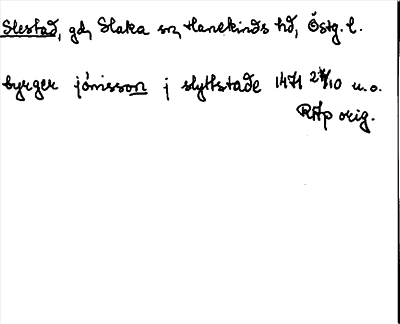 Slestad, gd, Slaka sn, Hanekinds hd, Östg. l.
byrger jönisson j slytstade 1471 24/10 u.o.
RAp orig.